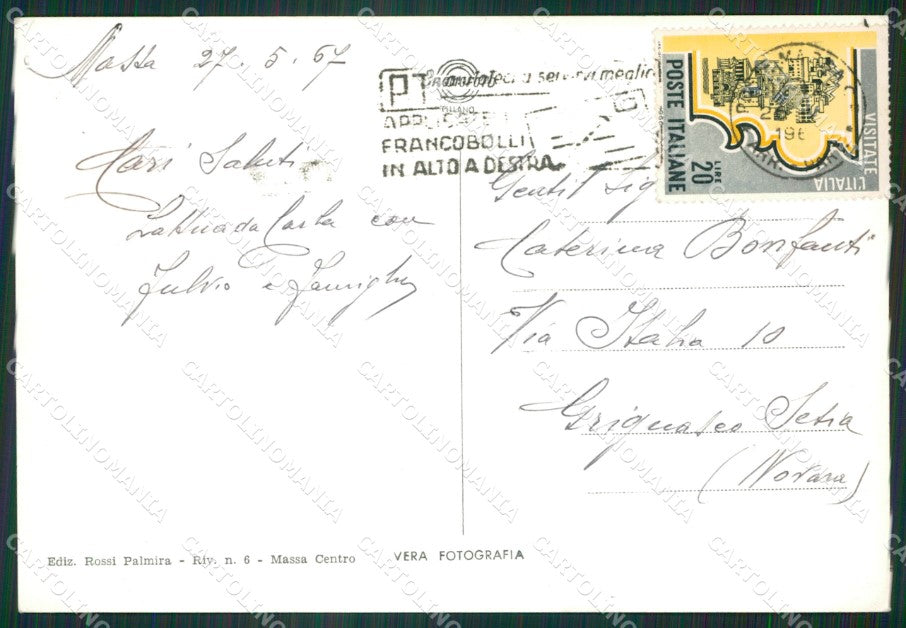 Massa 27.5.67
PT aiutateci a servirvi meglio
APPLICATE I
FRANCOBOLLI
IN ALTO A DESTRA
POSTE ITALIANE
LIRE 20
VISITATE L'ITALIA
Cari Saluti
Lattuada Carla con
Fulvio e Famiglia
Gentil Sig
Caterina Bonfanti
Via Italia 10
Grignasco Sesia
(Novara)
Ediz. Rossi Palmira - Riv. n. 6 - Massa Centro
VERA FOTOGRAFIA
CARTOLINOMANIA